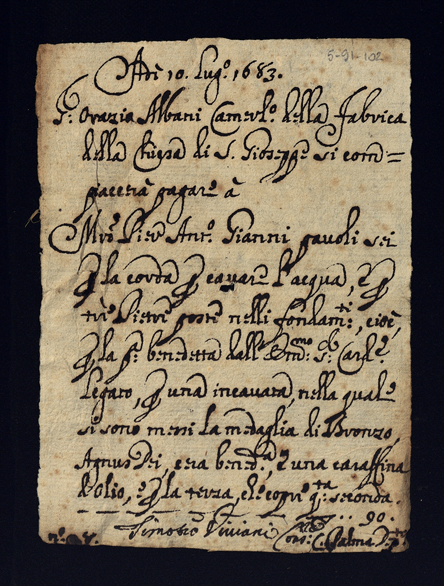 5-91-102
Adi 10. Lug.o 1683.
S.r Orazio Albani Camerl.o della Fabrica
della Chiesa di S. Gioseppe si com=
piacerà pagare à
M.ro Pier Ant.o Gianni pavoli sei
p la corda p cavare l'acqua, e p
tre Pietre poste nelli fondam.ti, cioè,
p la p.a benedetta dall' Em.mo S.r Card.e
Legato, p una incavata, nella quale
si sono messi la medaglia di Bronzo,
Agnus Dei, cera bened.ta, e una caraffina
d'olio, e p la terza, che coprì q.ta seconda.
90.
Timoteo Viviani C. Palma